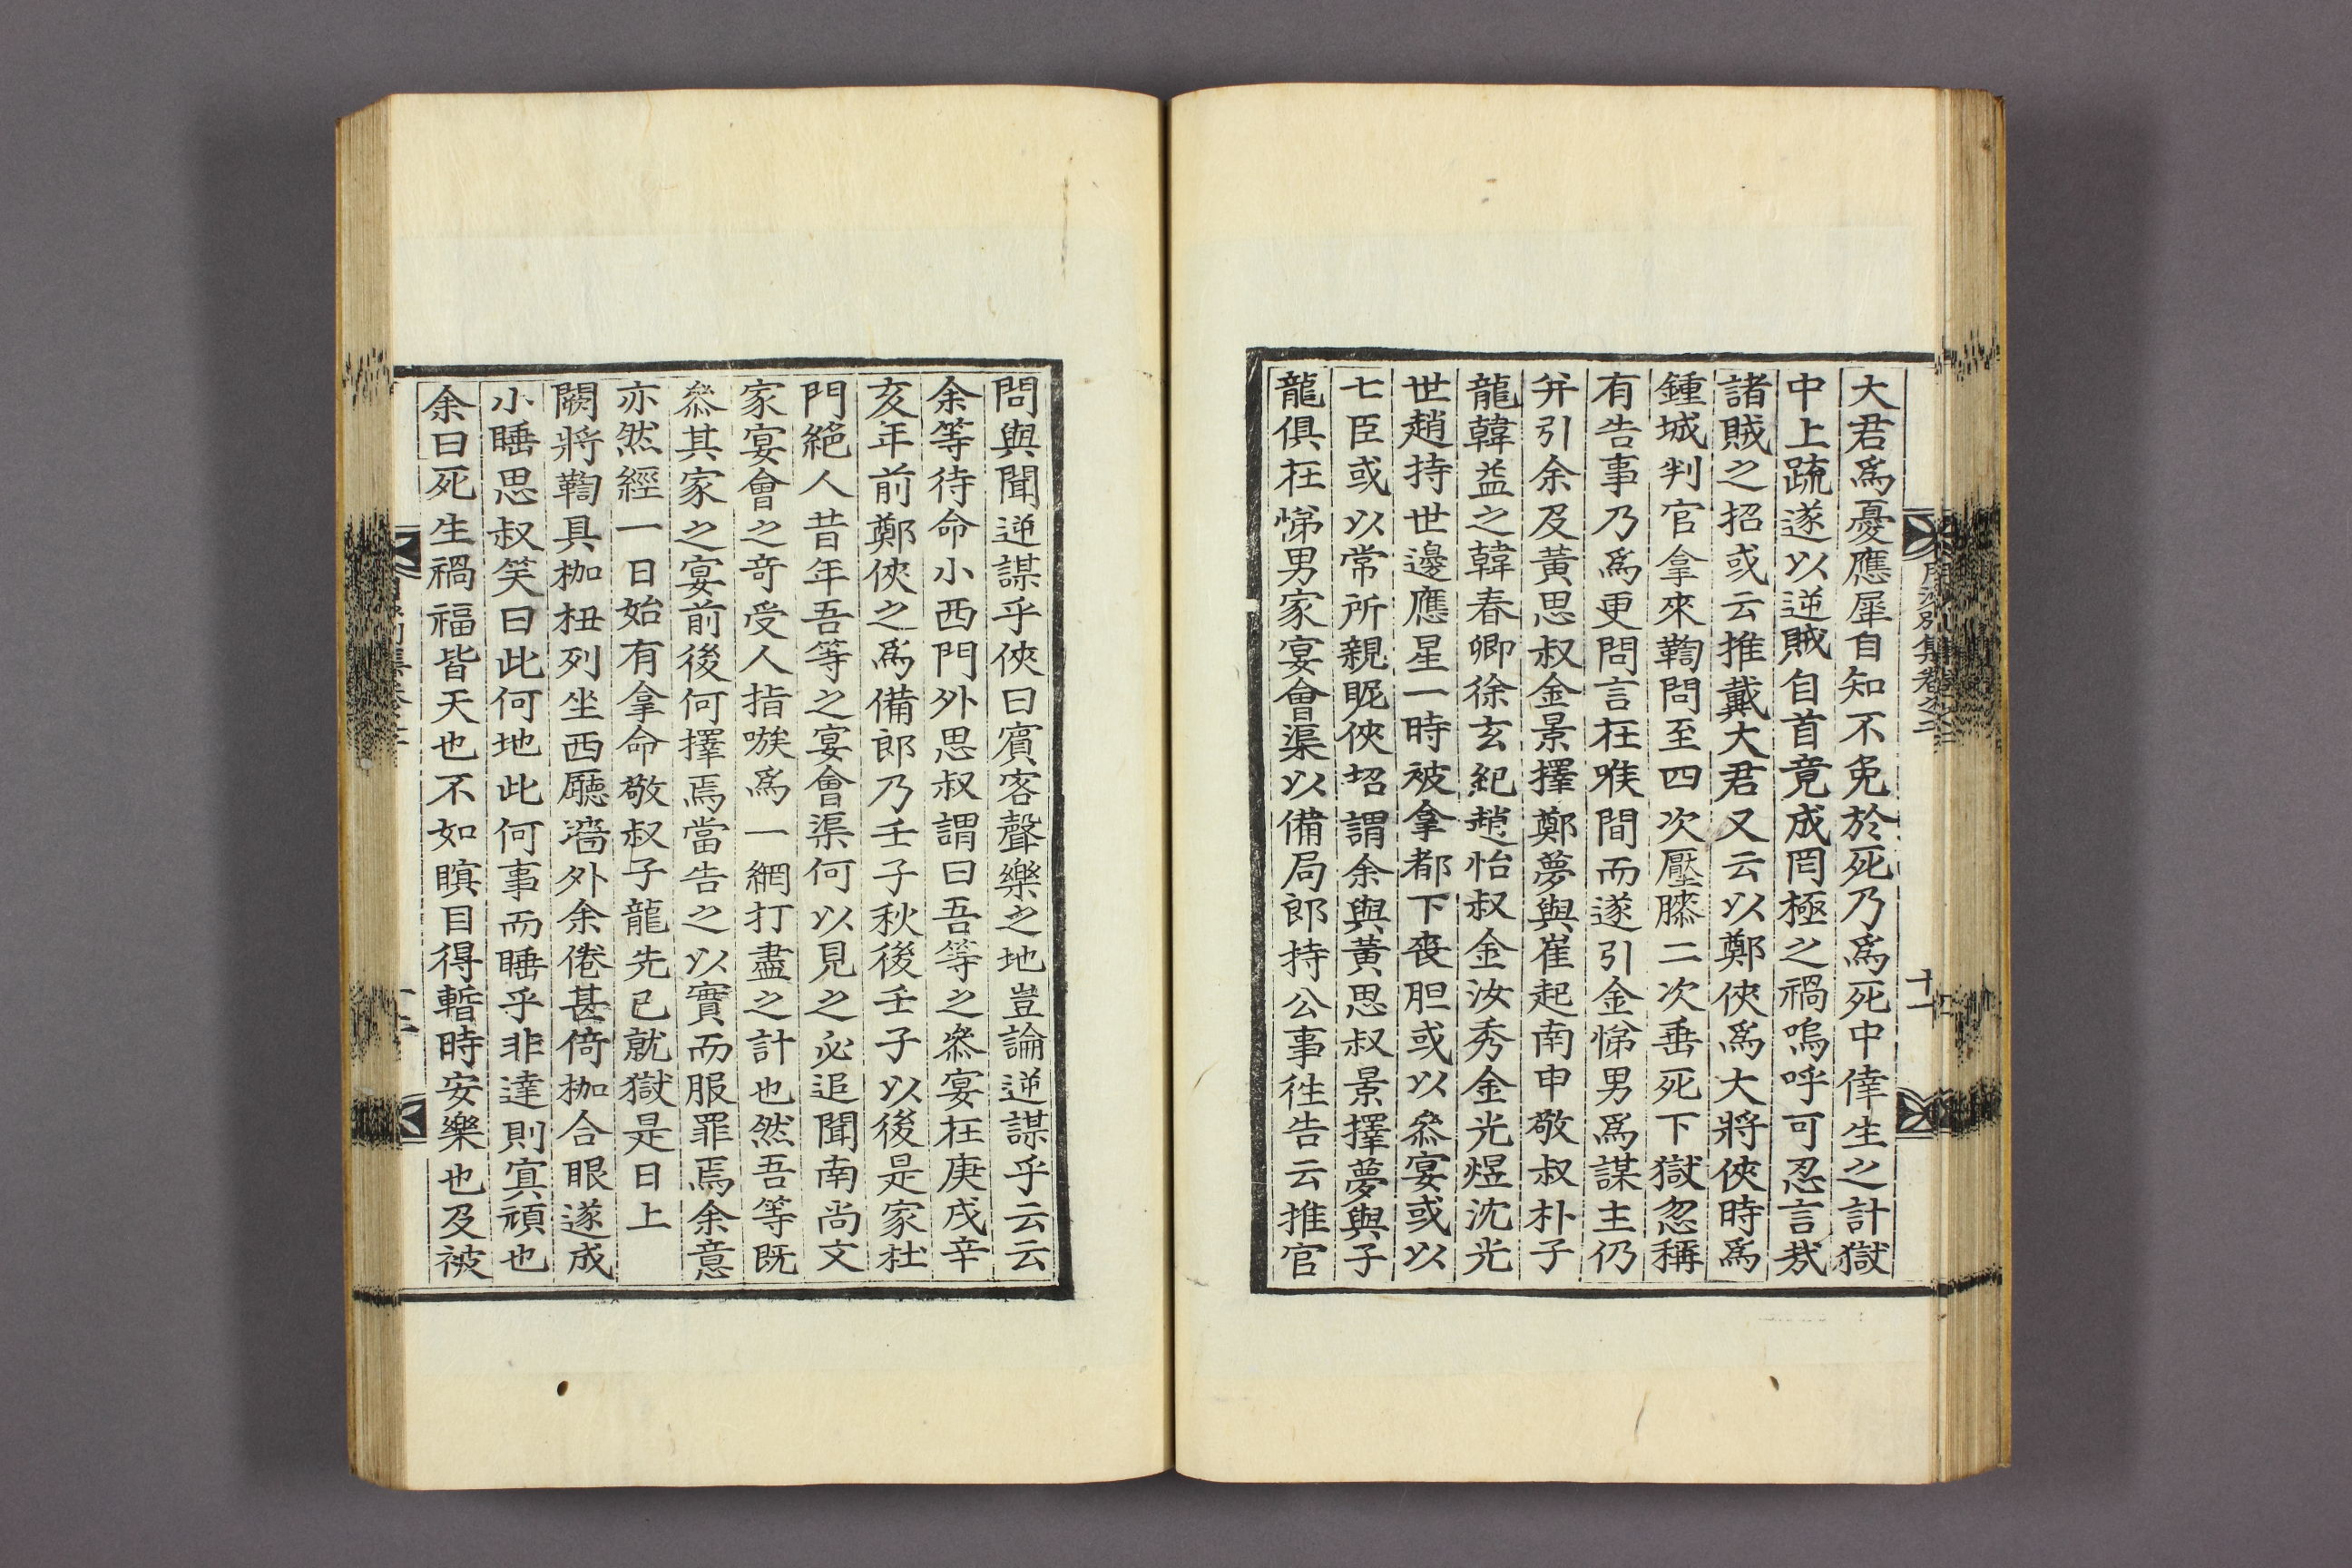 大君爲憂應犀自知不免於死乃爲死中倖生之計獄
中上疏遂以逆賊自首竟成罔極之禍嗚呼可忍言哉
諸賊之招或云推戴大君又云以鄭俠爲大將俠時爲
鍾城判官拿來鞫問至四次壓膝二次垂死下獄忽稱
有告事乃爲更問言在喉間而遂引金悌男爲謀主仍
幷引余及黃思叔金景擇鄭夢與崔起南申敬叔朴子
龍韓益之韓春卿徐玄紀趙怡叔金汝秀金光煜沈光
世趙持世邊應星一時被拿都下喪胆或以叅宴或以
七臣或以常所親昵俠招謂余與黃思叔景擇夢與子
龍俱在悌男家宴會渠以備局郎持公事徃告云推官
問與聞逆謀乎俠曰賓客聲樂之地豈論逆謀乎云云
余等待命小西門外思叔謂曰吾等之叅宴在庚戌辛
亥年前鄭俠之爲備郎乃壬子秋後壬子以後是家杜
門絕人昔年吾等之宴會渠何以見之必追聞南尚文
家宴會之奇受人指嗾爲一網打盡之計也然吾等旣
叅其家之宴前後何擇焉當告之以實而服罪焉余意
亦然經一日始有拿命敬叔子龍先已就獄是日上
闕將鞫具枷杻列坐西廳墻外余倦甚倚枷合眼遂成
小睡思叔笑曰此何地此何事而睡乎非達則寘頑也
余曰死生禍福皆天也不如瞑目得暫時安樂也及被